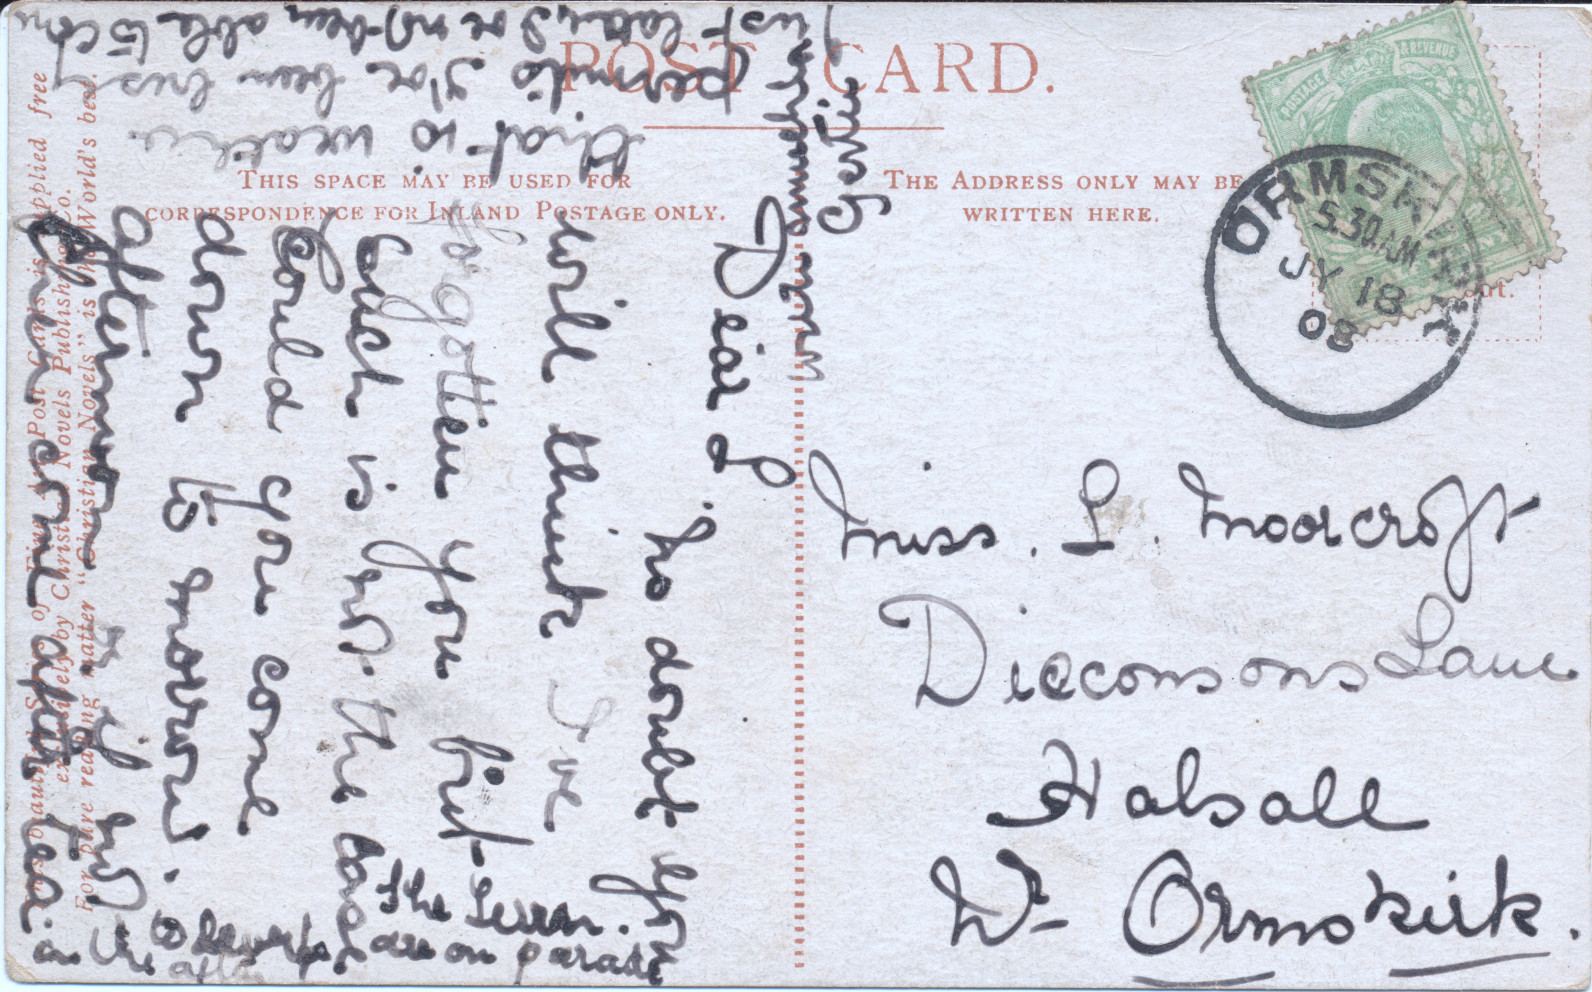 POST CARD.
THIS SPACE MAY BE USED FOR
CORRESPONDENCE FOR INLAND POSTAGE ONLY.
THE ADDRESS ONLY MAY BE
WRITTEN HERE.
POSTAGE & REVENUE
ORMSKIRK
5.30 AM
JY 18
08
Miss. L. Moorcroft
Diecconsons Lane
Halsall
Nr Ormskirk.
Dear L
No doubt you
will think I've
forgotten you but
such is not the case
Could you come
down to morrow
afternoon, if
then come after tea.
The Terr.
are on parade
in the
that is weather
permits I've been busy
just lately I've not been able to
tomorrow
Gertie
This beautiful Series of Fine Art Post Cards is supplied free
exclusively by Christian Novels Publishing Co.
For pure reading matter "Christian Novels" is the World's best.